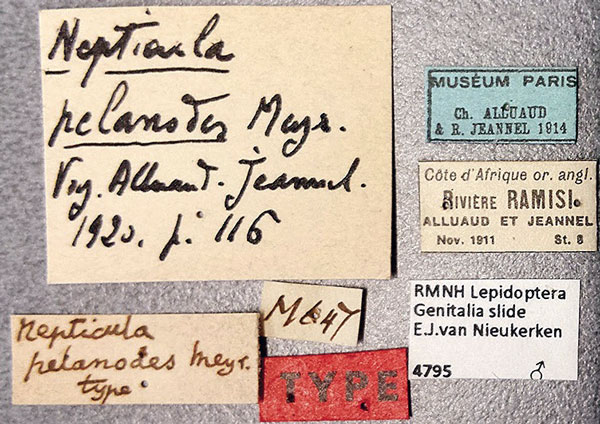 Nepticula
pelanodes Meyr.
Voy. Alluaud. Jeannel.
1920. p. 116
MUSÉUM PARIS
Ch. ALLUAUD
& R. JEANNEL 1914
Côte d'Afrique or. angl.
RIVIÈRE RAMISI.
ALLUAUD ET JEANNEL
Nov. 1911 St. 8
Nepticula
pelanodes Meyr.
type.
TYPE
RMNH Lepidoptera
Genitalia slide
E.J.van Nieukerken
4795 ♂